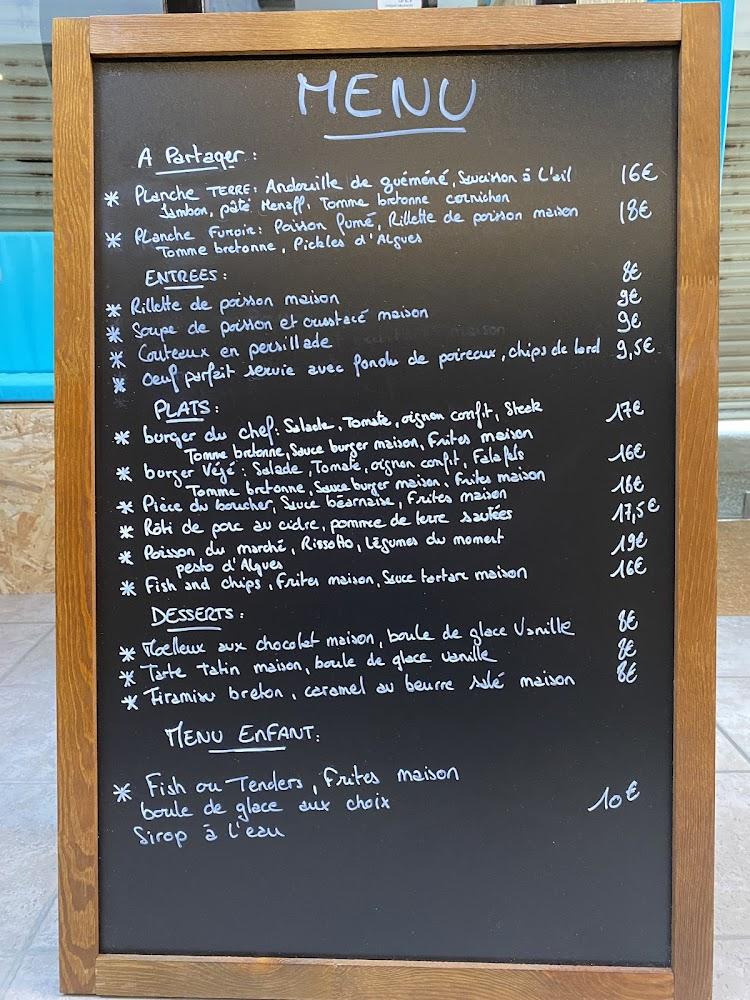 MENU
A Partager :
* Planche TERRE: Andouille de guéméné, Saucisson à L'ail 16€
Jambon, pâté Henaff, Tomme bretonne cornichon
* Planche Furoir: Poisson fumé, Rillette de poisson maison 18€
Tomme bretonne, Pickles d'Algues
ENTREES :
* Rillette de poisson maison 8€
* Soupe de poisson et crustacé maison 9€
* Couteaux en persillade 9€
* Oeuf parfait servie avec fondu de poireaux, chips de lard 9,5€
PLATS :
* burger du chef: Salade, Tomate, oignon confit, Steak 17€
Tomme bretonne, Sauce burger maison, Frites maison
* burger Végé : Salade, Tomate, oignon confit, Falafels 16€
Tomme bretonne, Sauce burger maison, Frites maison
* Pièce du boucher, Sauce béarnaise, Frites maison 18€
* Rôti de porc au cidre, pomme de terre sautées 17,5€
* Poisson du marché, Risotto, Légumes du moment 19€
pesto d'Algues
* Fish and chips, Frites maison, Sauce tartare maison 16€
DESSERTS :
* Moelleux aux chocolat maison, boule de glace Vanille 8€
* Tarte Tatin maison, boule de glace vanille 8€
* Tiramisu breton, caramel au beurre salé maison 8€
MENU ENFANT:
* Fish ou Tenders, Frites maison
boule de glace aux choix 10€
Sirop à l'eau